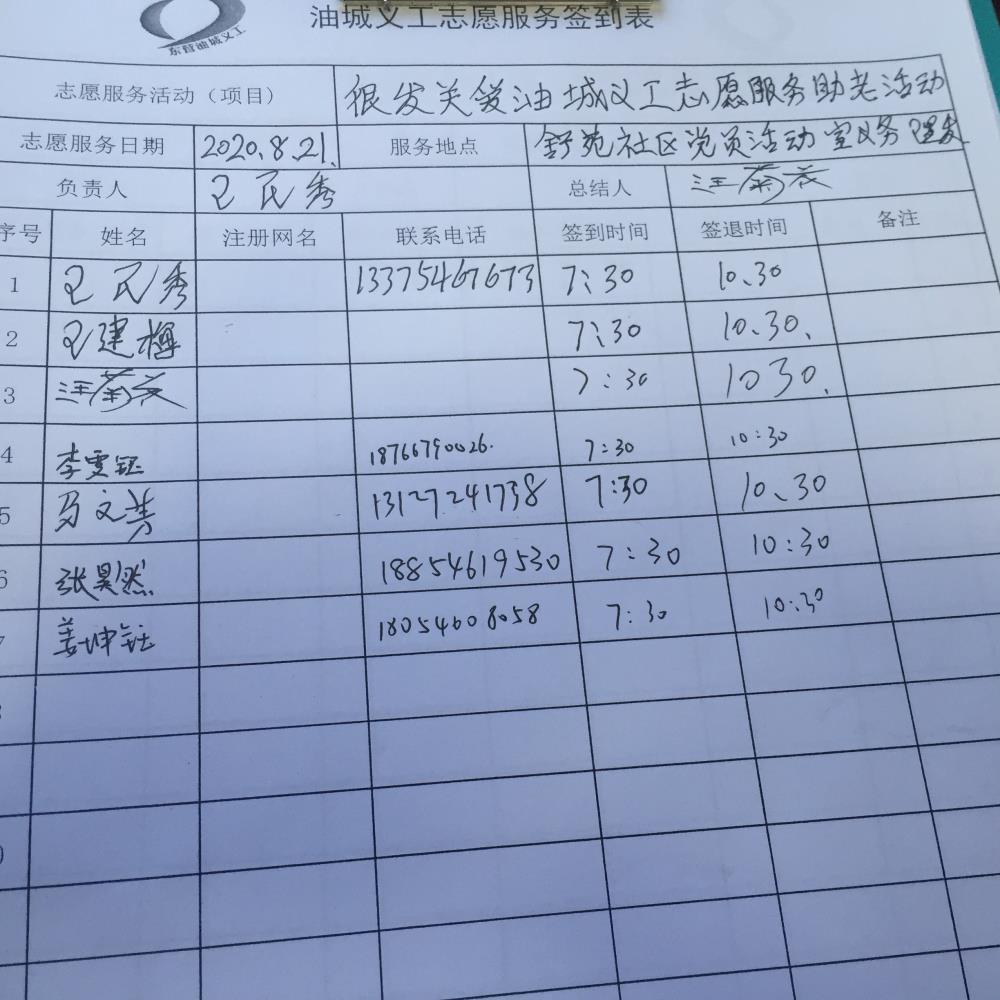 油城义工志愿服务签到表
东营油城义工
志愿服务活动（项目） 银发关爱油城义工志愿服务助老活动
志愿服务日期 2020.8.21. 服务地点 舒苑社区党员活动室义务理发
负责人 王民秀 总结人 汪菊
序号 姓名 注册网名 联系电话 签到时间 签退时间 备注
1 王民秀 13375467673 7:30 10.30
2 王建梅 7:30 10.30.
3 汪菊 7:30 1030.
4 李雯钰 18766790026. 7:30 10:30
5 马文 13127241738 7:30 10、30
6 张昊然 18854619530 7:30 10:30
7 姜坤钰 18054608058 7:30 10:30